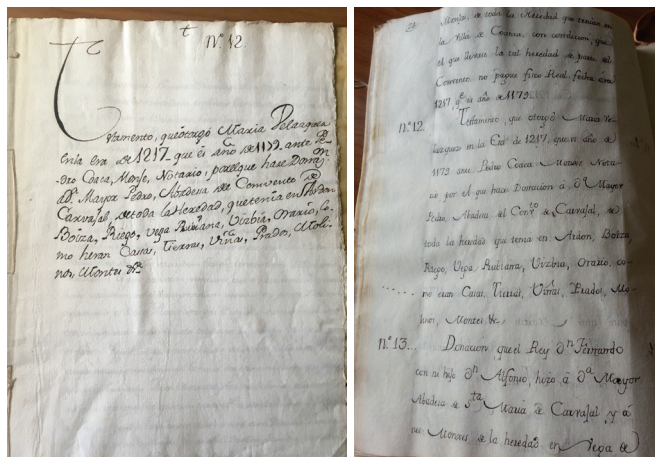 Nº 12.
Testamento, que otorgó Maria Velazquez
en la era de 1217 que es año de 1179 ante Pe-
dro Coaca, Monje, Notario, por el que hace Donaz.on
à D.ª Mayor Pedro, Abadesa del Convento de
Carvajal, de toda la Heredad, que tenia en Ardon
Boiza, Riego, Vega Rubiana, Vizbia, Orario, co-
mo heran Casas, Tierras, Viñas, Prados, Moli-
nos, Montes &.ª
Monso, de toda la Heredad que tenian en
la Villa de Coanca, con condicion, que
el que llevare la tal heredad de parte del
Convento no pague fuero Real, fecha era
1217, q.e es año de 1179.
n.º 12. Testamento, que otorgó Maria Ve-
lazquez en la Era de 1217, que es año de
1179 ante Pedro Coaca Monje Nota-
rio por el que hace Donacion à D.ª Mayor
Pedro, Abadesa del Con.to de Carvajal, de
toda la heredad que tenia en Ardon, Boiza,
Riego, Vega Rubiana, Vizbna, Orario, co-
mo eran Casas, Tierras, Viñas, Prados, Mo-
linos, Montes &c.
n.º 13... Donacion, que el Rey d.n Fernando
con su hijo D.n Alfonso, hizo à d.ª Mayor
Abadesa de S.ta Maria de Carvajal y à
sus Monjas de la heredad en Vega de